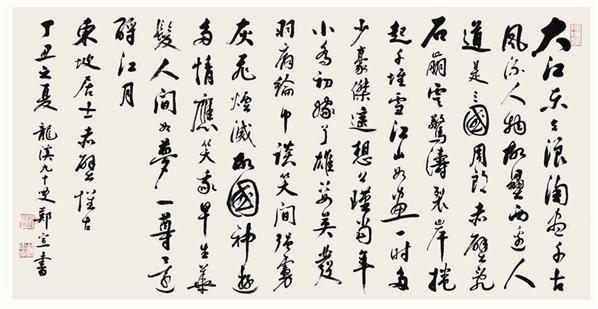 大江东去浪淘尽千古
风流人物故壘西邊人
道是三國周郎赤壁乱
石崩雲驚濤裂岸捲
起千堆雪江山如畫一时多
少豪傑遥想公瑾当年
小乔初嫁了雄姿英發
羽扇綸巾談笑間强虏
灰飞煙滅故國神遊
多情應笑我早生華
髮人間如夢一尊還
酹江月
東坡居士赤壁懷古
丁丑之夏 龍溪 叟鄭宣書